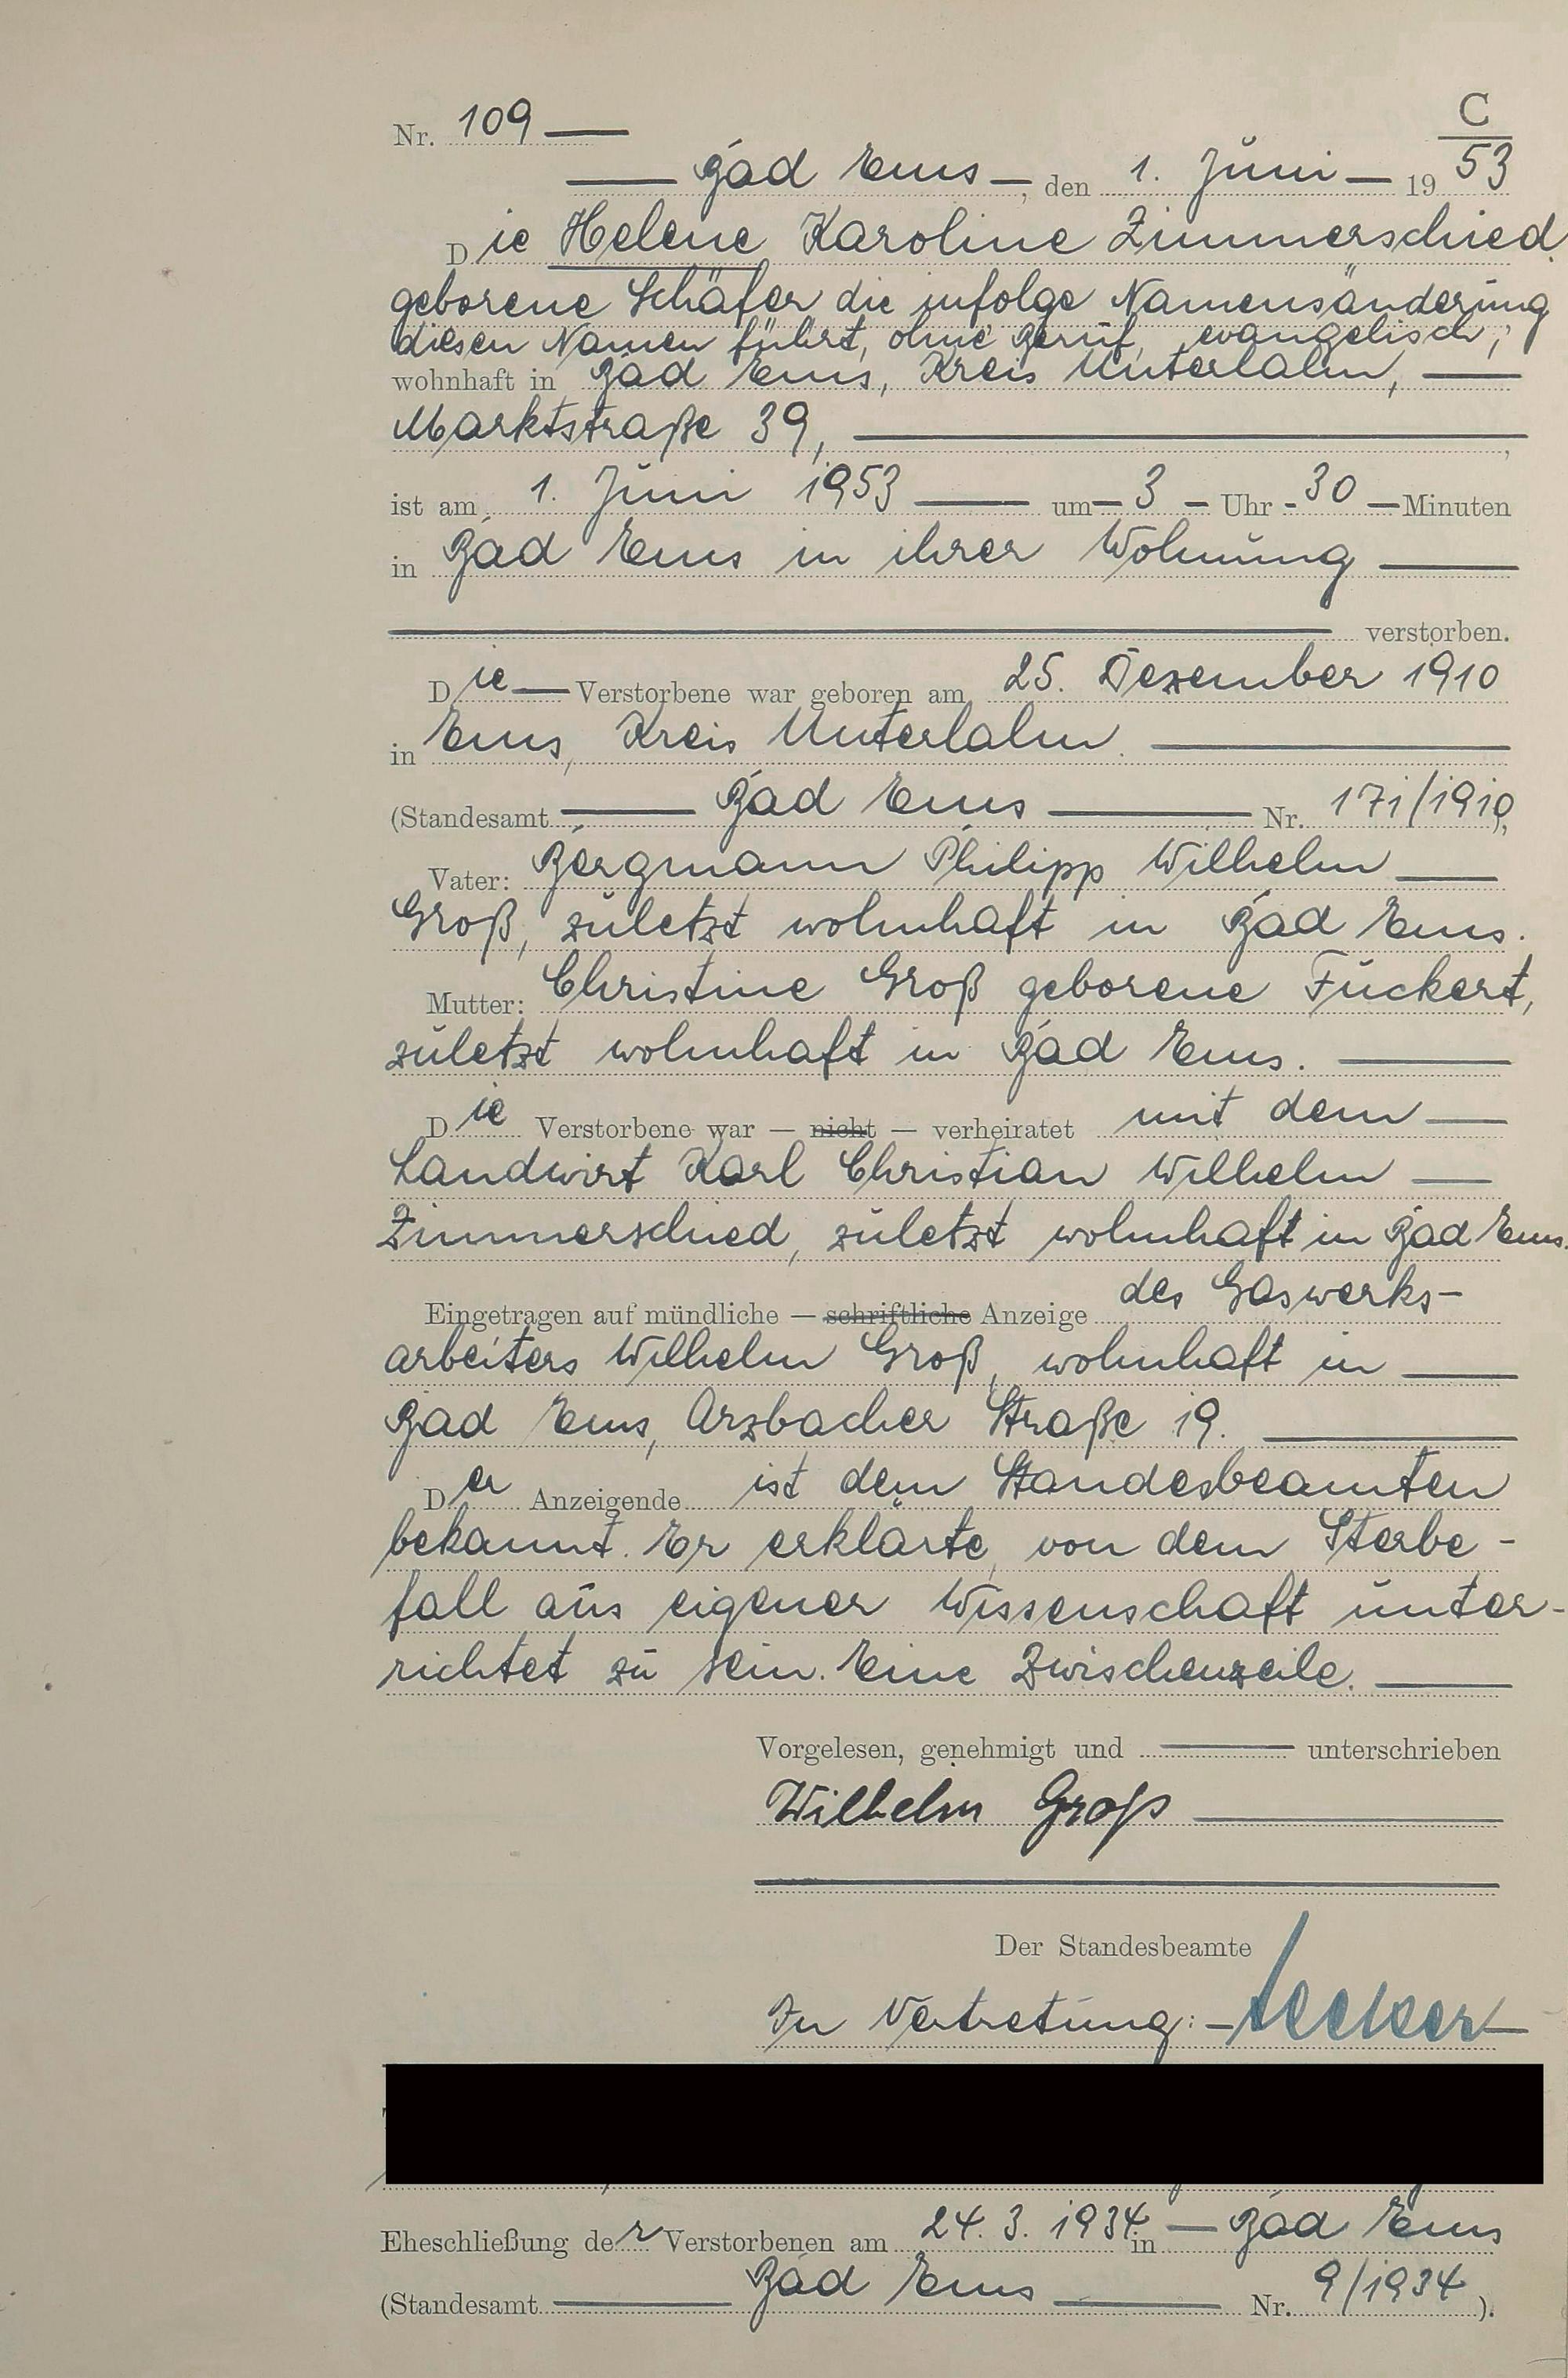 C
Nr. 109
Bad Ems, den 1. Juni 19 53
Die Helene Karoline Zimmerschied
geborene Schäfer die infolge Namensänderung
diesen Namen führt, ohne Beruf, evangelisch,
wohnhaft in Bad Ems, Kreis Unterlahn,
Marktstraße 39,
ist am 1. Juni 1953 um 3 Uhr 30 Minuten
in Bad Ems in ihrer Wohnung
verstorben.
Die Verstorbene war geboren am 25. Dezember 1910
in Ems, Kreis Unterlahn.
(Standesamt Bad Ems Nr. 171/1910),
Vater: Bergmann Philipp Wilhelm
Groß, zuletzt wohnhaft in Bad Ems.
Mutter: Christine Groß geborene Fuckert,
zuletzt wohnhaft in Bad Ems.
Die Verstorbene war — nicht — verheiratet mit dem
Landwirt Karl Christian Wilhelm
Zimmerschied, zuletzt wohnhaft in Bad Ems.
Eingetragen auf mündliche — schriftliche Anzeige des Gaswerks-
arbeiters Wilhelm Groß, wohnhaft in
Bad Ems, Arzbacher Straße 19.
Der Anzeigende ist dem Standesbeamten
bekannt. Er erklärte, von dem Sterbe-
fall aus eigener Wissenschaft unter-
richtet zu sein. Eine Zwischenzeile.
Vorgelesen, genehmigt und unterschrieben
Wilhelm Groß
Der Standesbeamte
In Vertretung:
Eheschließung der Verstorbenen am 24. 3. 1934 in Bad Ems
(Standesamt Bad Ems Nr. 9/1934).